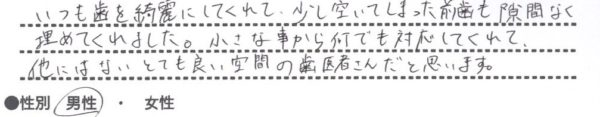 いつも歯を綺麗にしてくれて、少し空いてしまった前歯も隙間なく
埋めてくれました。小さな事から何でも対応してくれて、
他にはないとても良い空間の歯医者さんだと思います。
●性別 男性 ・ 女性